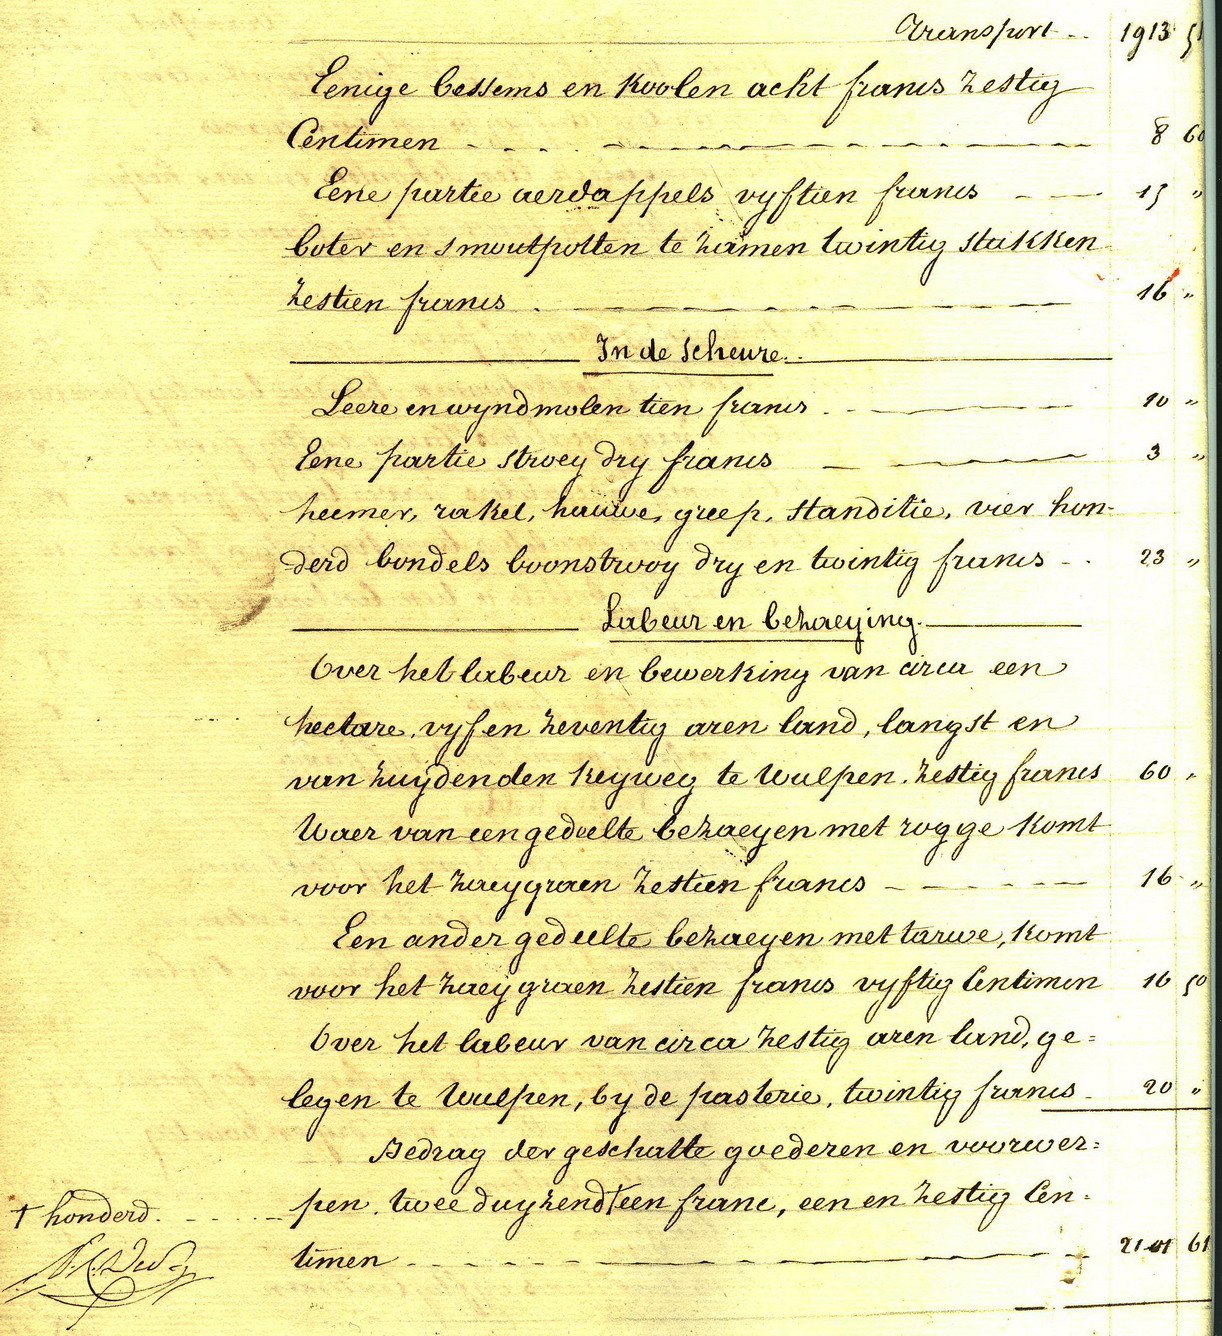 Transport 1913 51
Eenige bessems en koolen acht francs zestig
Centimen 8 60
Eene partie aerdappels vyftien francs 15 "
boter en smoutpotten te zamen twintig stukken
zestien francs 16 "
In de Scheure.
Leere en wyndmolen tien francs 10 "
Eene partie stroey dry francs 3 "
heemer, rakel, hauwe, greep, standitie, vier hon-
derd bondels boonstrooy dry en twintig francs 23 "
Labeur en bezaeying.
Over het labeur en bewerking van circa een
hectare, vyf en zeventig aren land, langst en
van zuyden den keyweg te Wulpen. zestig francs 60 "
Waer van een gedeelte bezaeyen met rogge komt
voor het zaeygraen zestien francs 16 "
Een ander gedeelte bezaeyen met tarwe, komt
voor het zaeygraen zestien francs vyftig Centimen 16 50
Over het labeur van circa zestig aren land, ge=
legen te Wulpen, by de pasterie, twintig francs 20 "
Bedrag der geschatte goederen en voorwer=
pen, twee duyzend † een franc, een en zestig Cen=
† honderd.
timen 2101 61